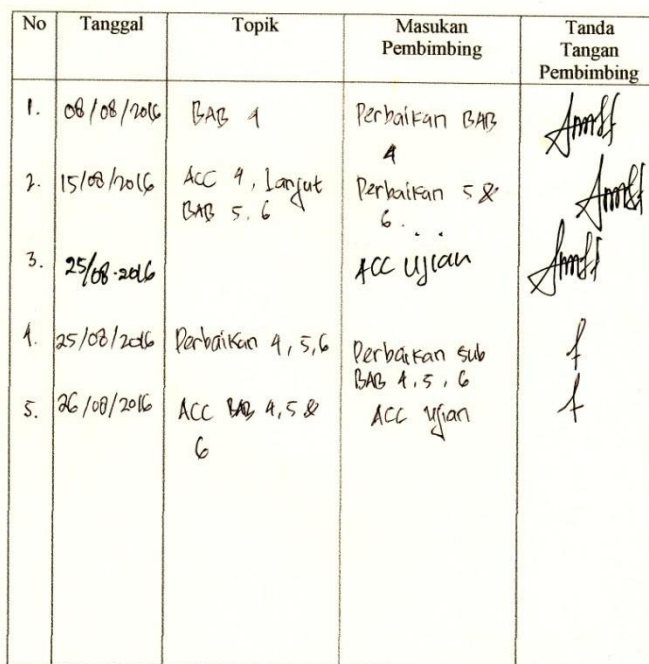 No Tanggal Topik Masukan Pembimbing Tanda Tangan Pembimbing
1. 08/08/2016 BAB 4 Perbaikan BAB 4
2. 15/08/2016 ACC 4, lanjut BAB 5.6 Perbaikan 5 & 6...
3. 25/08-2016 ACC Ujian
4. 25/08/2016 Perbaikan 4,5,6 Perbaikan sub BAB 4,5,6
5. 26/08/2016 ACC BAB 4,5 & 6 ACC Ujian